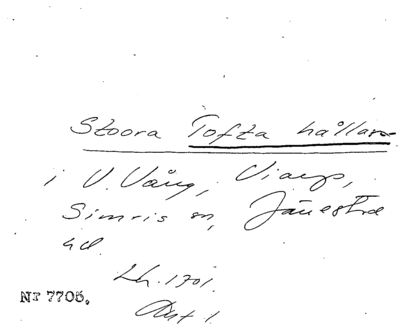 Stoora Tofta hållar
i V. Vång, Viarps,
Simris sn, Järrestad
hd.
Lh. 1701.
Akt 1.
Nr 7705.